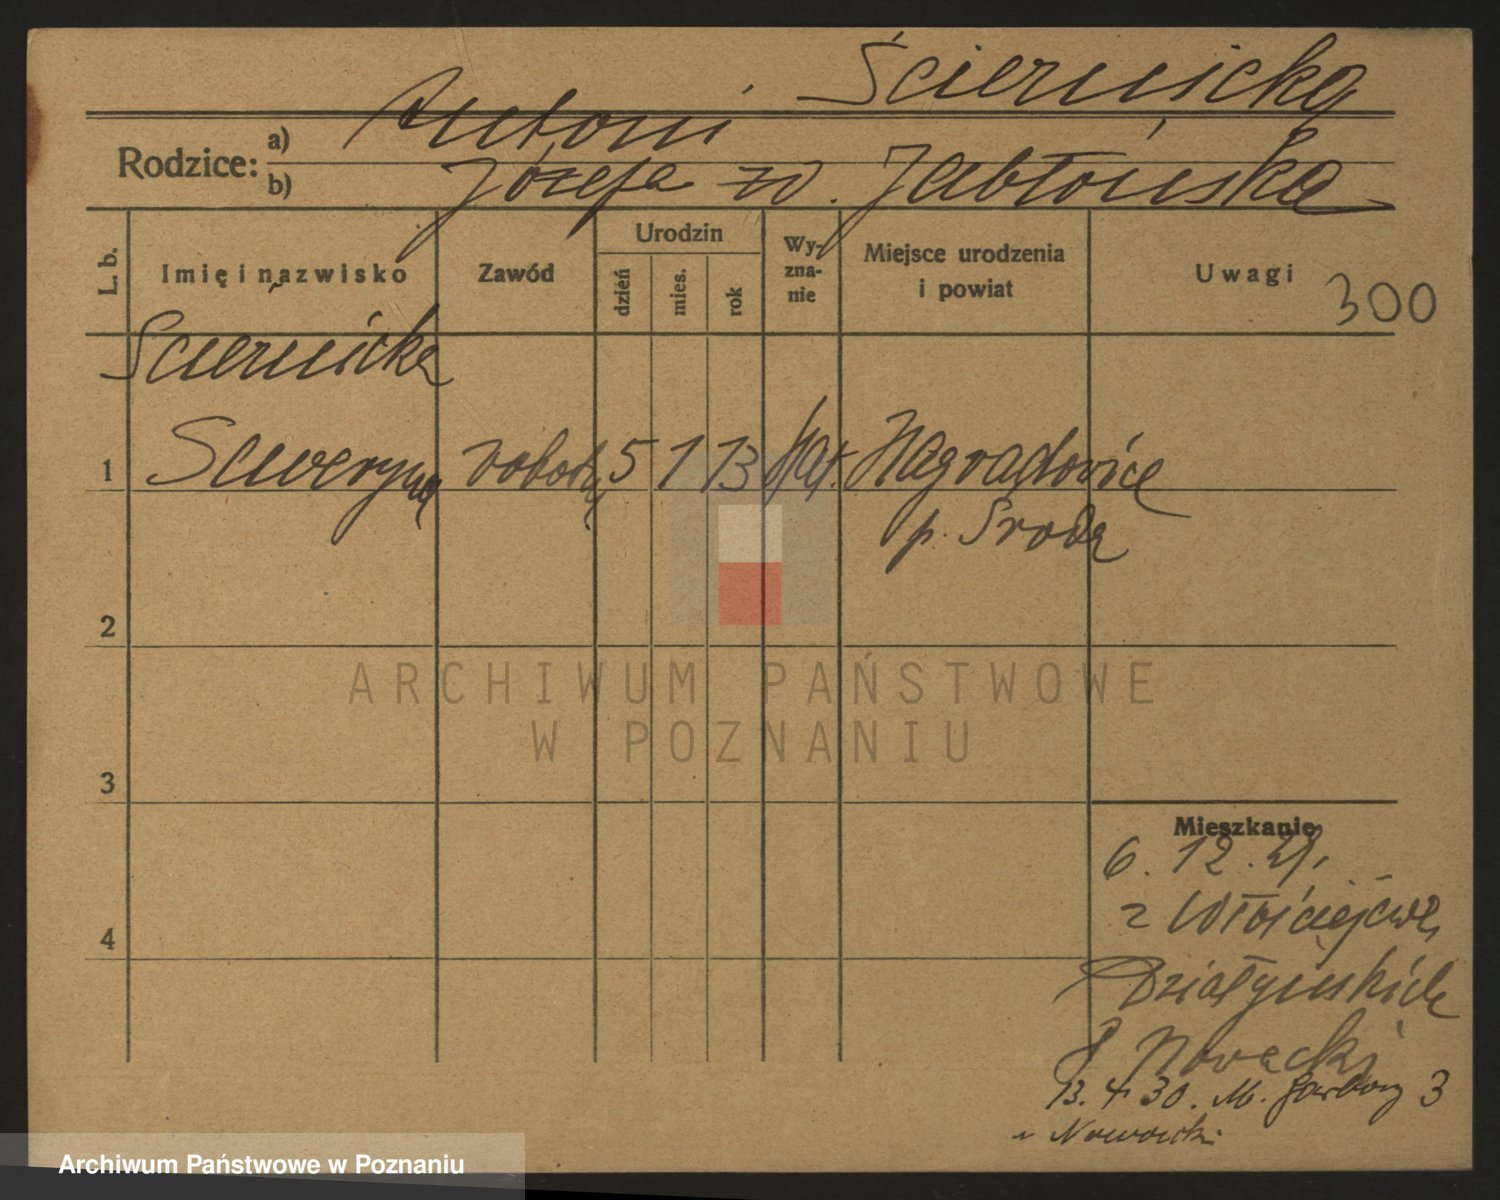 Ściernicka
Rodzice: a) Antoni
b) Józefa zd. Jabłońska
L. b. Imię i nazwisko Zawód Urodzin dzień mies. rok Wyznanie Miejsce urodzenia i powiat Uwagi 300
Ściernicka
1 Seweryna robotn 5 1 13 kat. Nagradowice
p. Środa
2
3
4
Mieszkanie
6. 12. 29.
z Włościejewe
Działyńskich
8 Nowacki
13. 4 30. M. Garbary 3
u Nowacki
ARCHIWUM PAŃSTWOWE
W POZNANIU
Archiwum Państwowe w Poznaniu